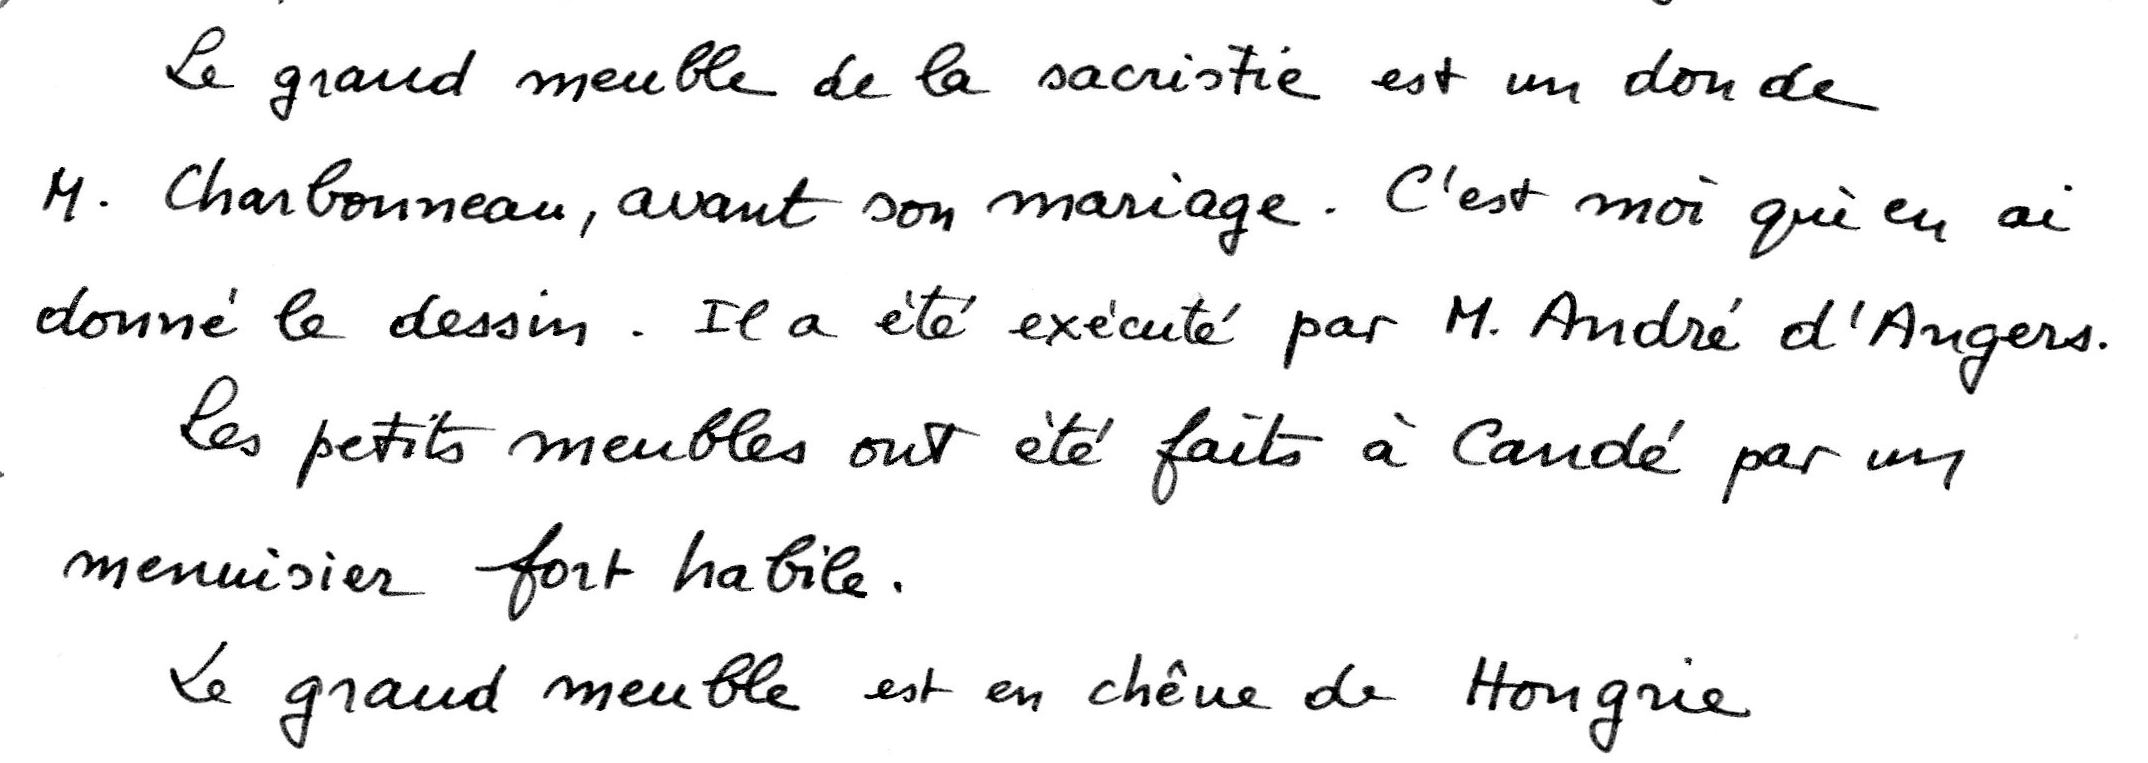 Le grand meuble de la sacristie est un don de
M. Charbonneau, avant son mariage. C'est moi qui en ai
donné le dessin. Il a été exécuté par M. André d'Angers.
Les petits meubles ont été faits à Candé par un
menuisier fort habile.
Le grand meuble est en chêne de Hongrie